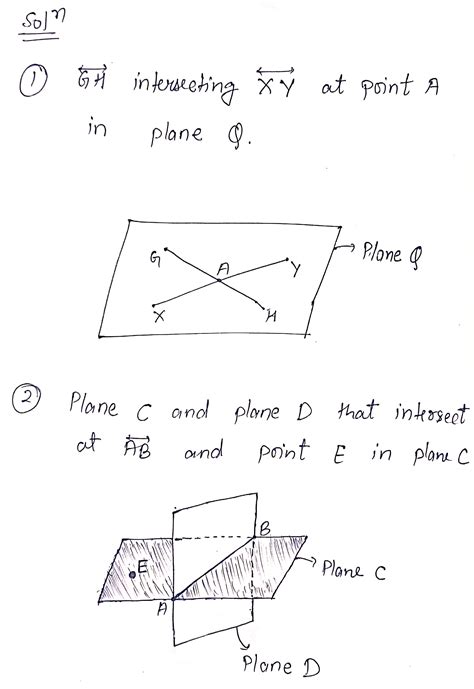 Solⁿ
① G͟H intersecting XY at point A
in plane Q.
G
A
Y
X
H
→ Plane Q
② Plane C and plane D that intersect
at AB and point E in plane C
B
E
→ Plane C
A
Plane D